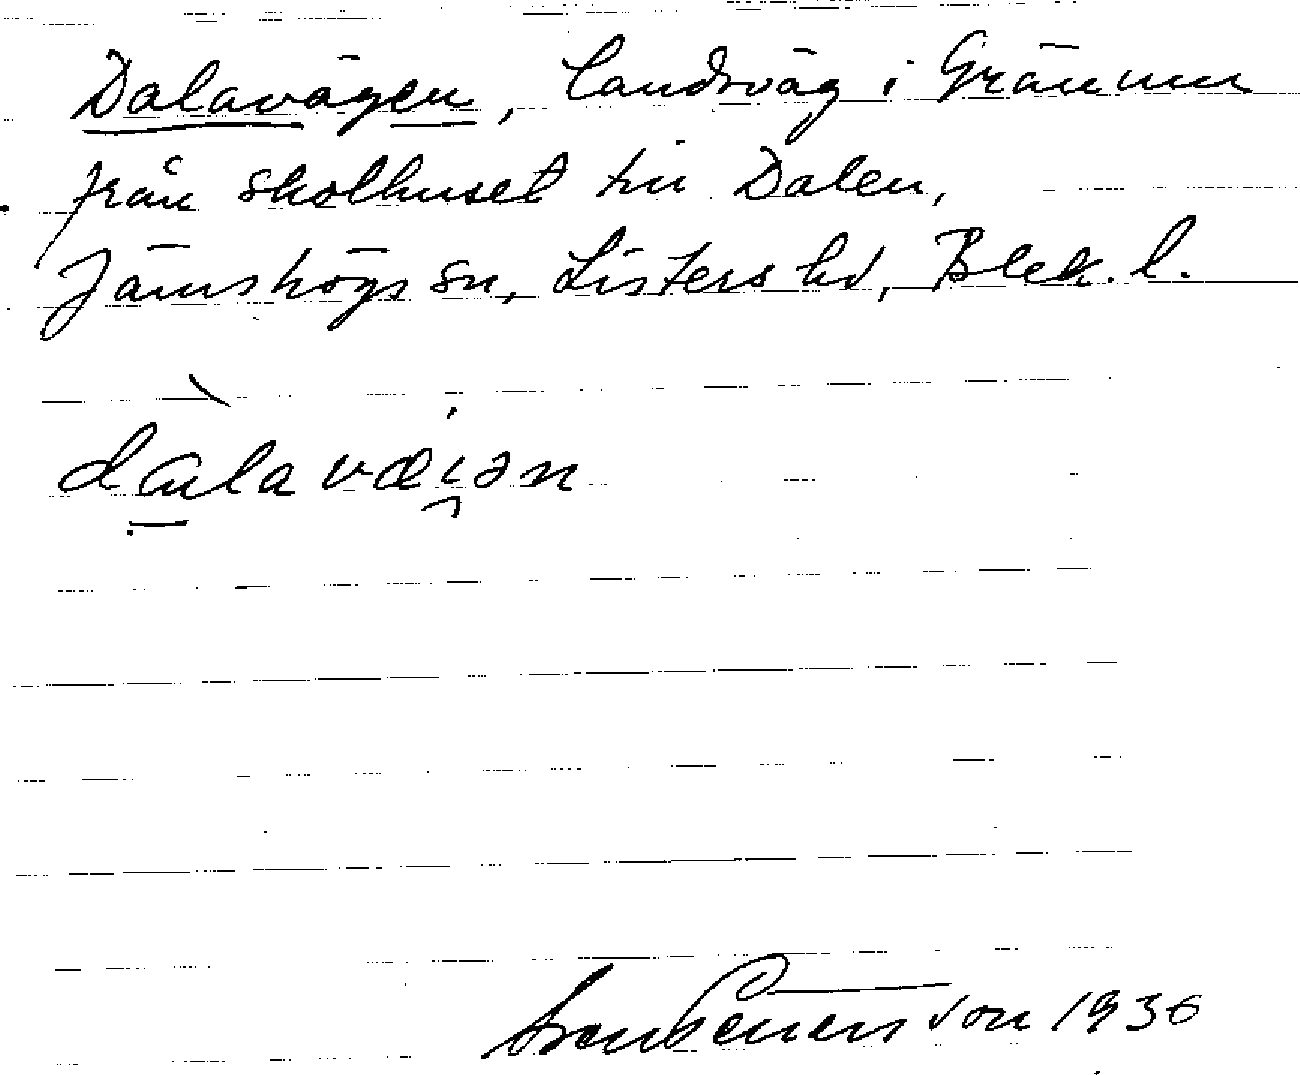 Dalavägen, landsväg i Gränum
från skolhuset till Dalen,
Jämshögs sn, Listers hd, Blek. l.
dɑlavæi̯ən
1936